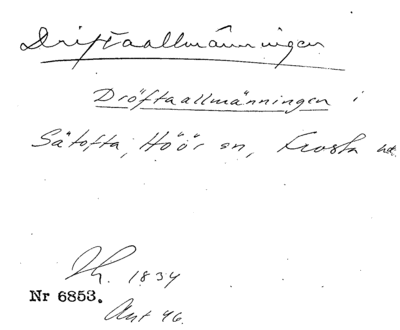 Driftaallmänningen
Dröftaallmänningen i
Sätofta, Höör sn, Frosta hd.
Th. 1834
Nr 6853.
Ant 46.